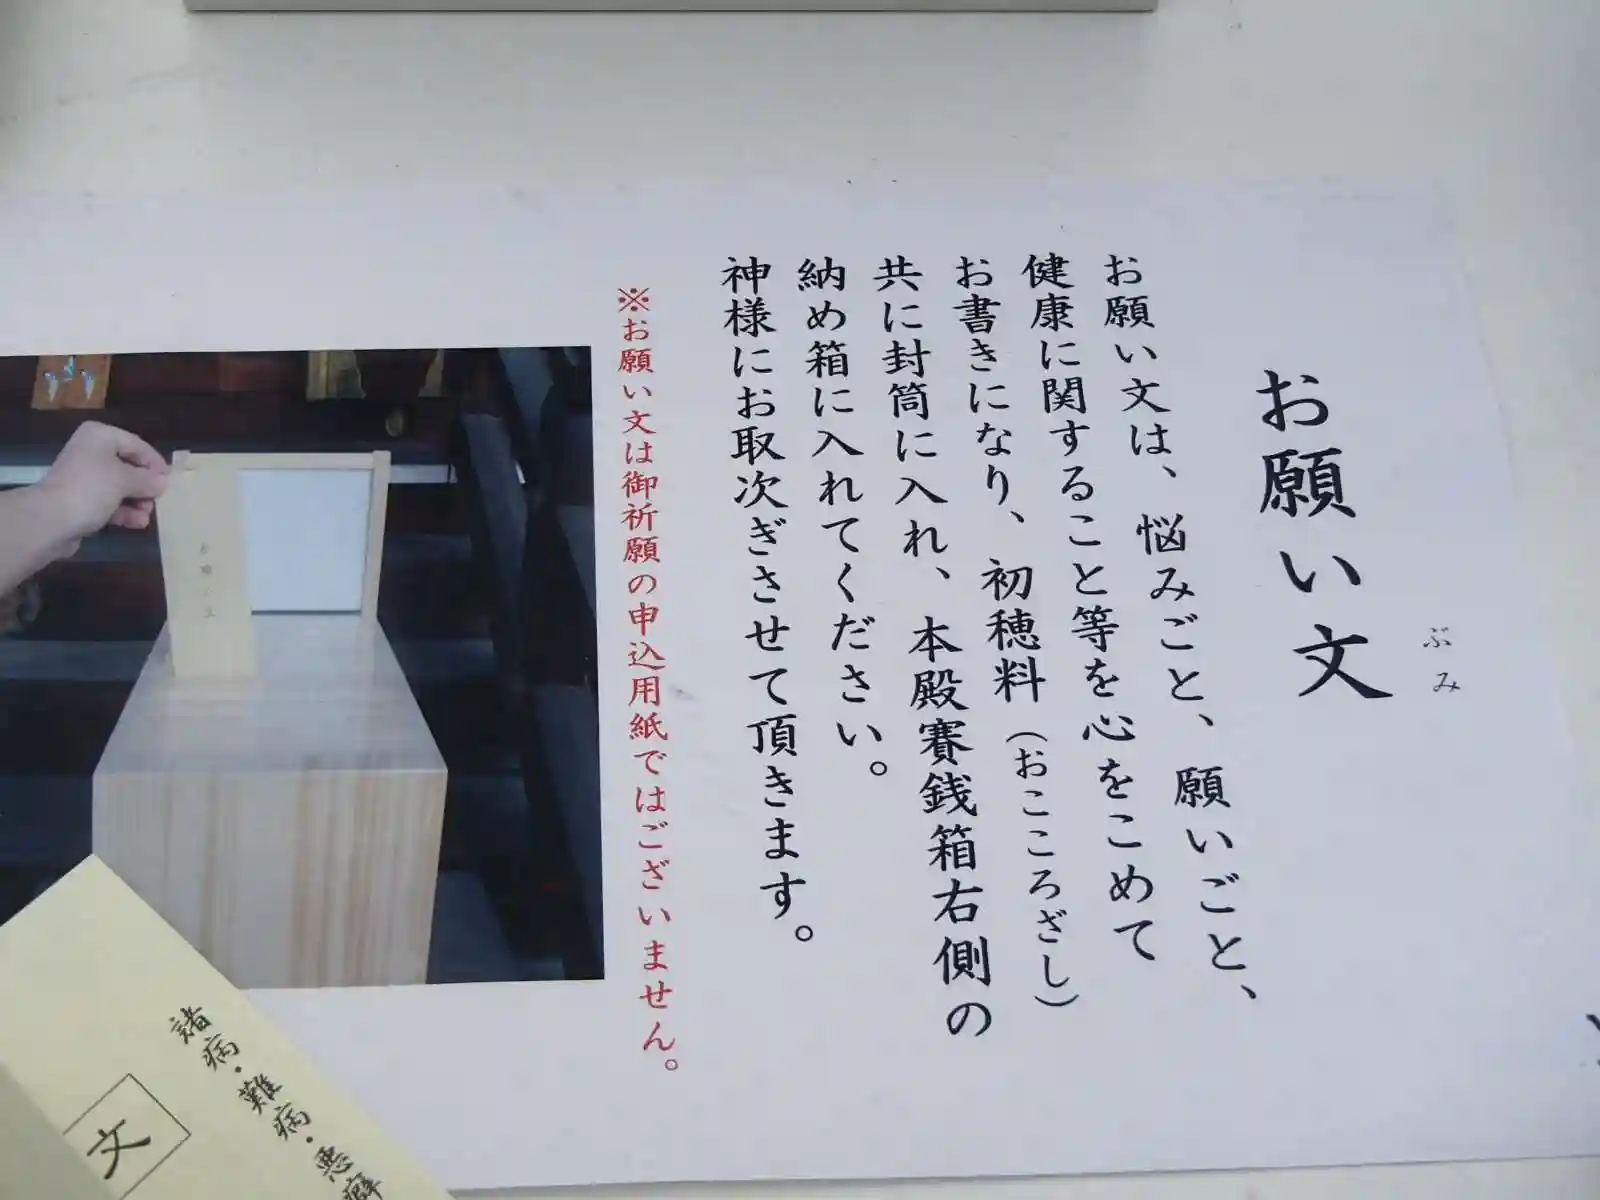 お願い文
ぶみ
お願い文は、悩みごと、願いごと、
健康に関すること等を心をこめて
お書きになり、初穂料（おこころざし）
共に封筒に入れ、本殿賽銭箱右側の
納め箱に入れてください。
神様にお取次ぎさせて頂きます。
※お願い文は御祈願の申込用紙ではございません。
お願い文
諸病・難病・悪癖
文